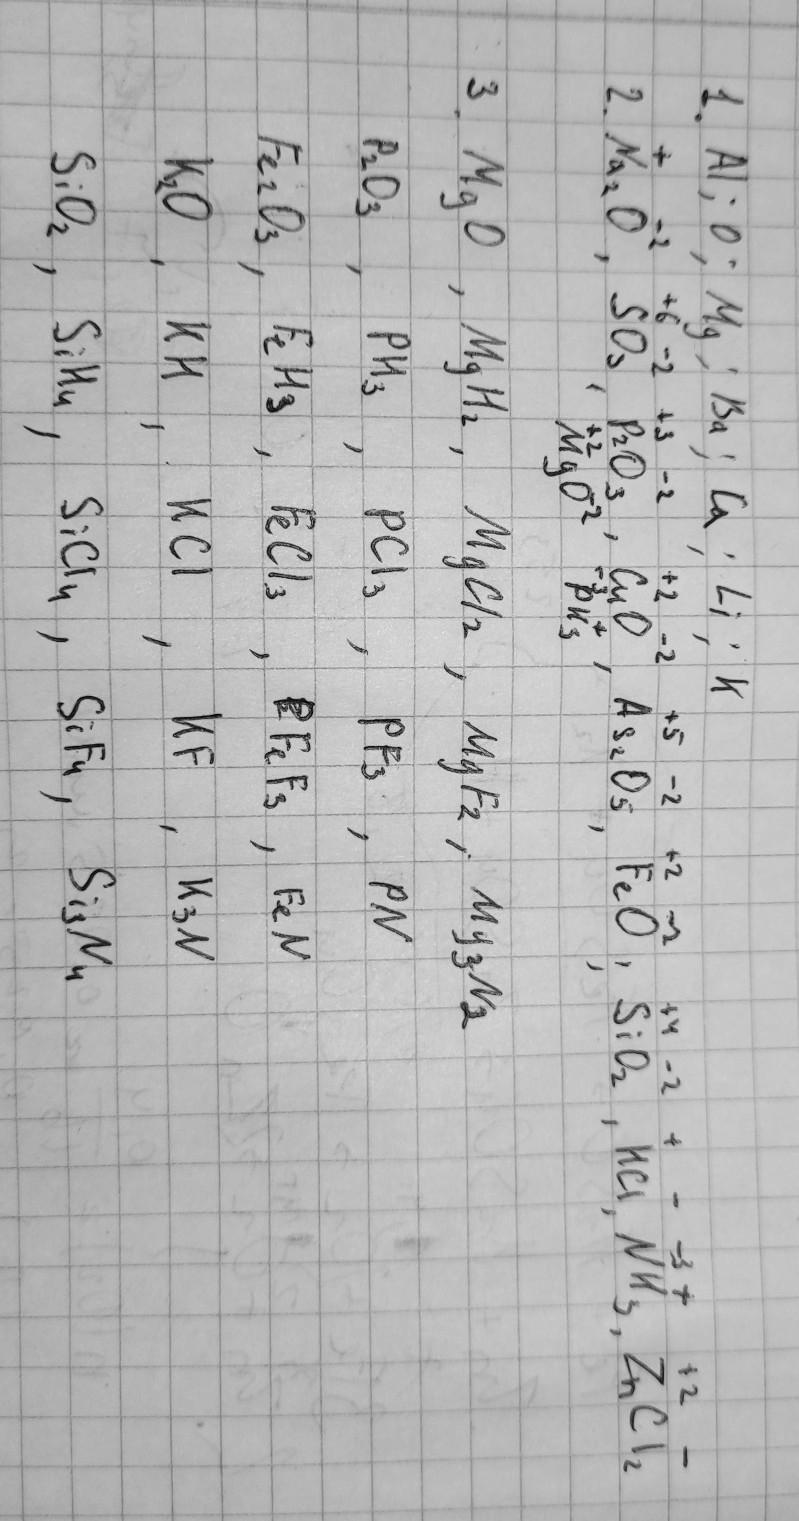 1. Al; O; Mg; Ba; Ca; Li; K
+ -2 +6 -2 +3 -2 +2 -2 +5 -2 +2 -2 +4 -2 + - -3 + +2 -
2. Na2O, SO3, P2O3, CuO, As2O5, FeO, SiO2, HCl, NH3, ZnCl2
+2 -2 -3 +
MgO PH3
3. MgO, MgH2, MgCl2, MgF2, Mg3N2
P2O3, PH3, PCl3, PF3, PN
Fe2O3, FeH3, FeCl3, FeF3, FeN
K2O, KH, KCl, KF, K3N
SiO2, SiH4, SiCl4, SiF4, Si3N4